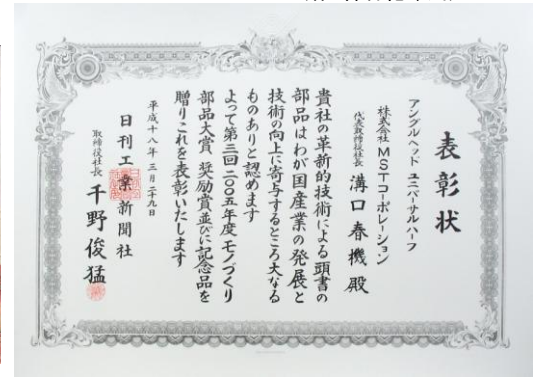 表彰状
アングルヘッド ユニバーサルハーフ
株式会社 MSTコーポレーション
代表取締役社長 溝口春機 殿
貴社の革新的技術による頭書の
部品はわが国産業の発展と
技術の向上に寄与するところ大なる
ものありと認めます
よって第三回二〇〇五年度モノづくり
部品大賞 奨励賞並びに記念品を
贈りこれを表彰いたします
平成十八年三月二十九日
日刊工業新聞社
取締役社長 千野俊猛